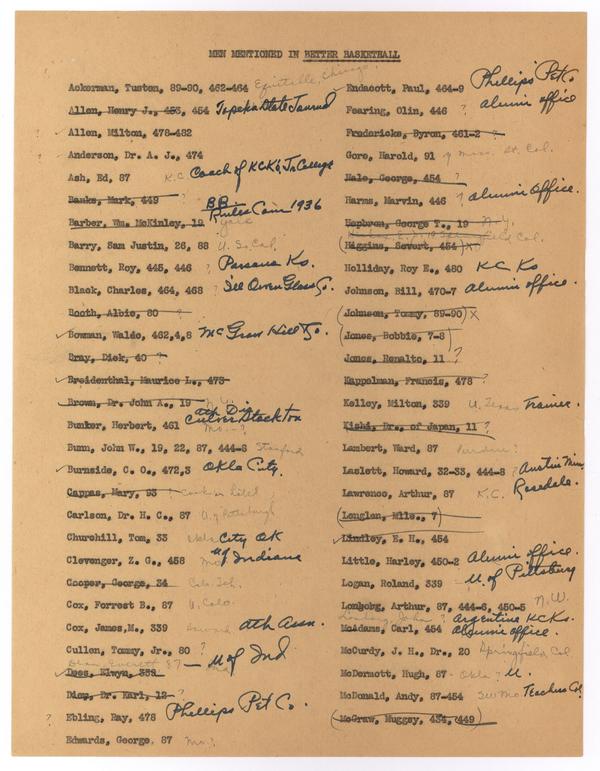 MEN MENTIONED IN BETTER BASKETBALL
Ackerman, Tusten, 89-90, 462-464
Allen, Henry J., 453, 454 Topeka State Journal
Allen, Milton, 478-482
Anderson, Dr. A. J., 474
Ash, Ed, 87 K.C. Coach of KCKs Jr College
Banks, Mark, 449 ?
BB Rules Com 1936
Barber, Wm. McKinley, 19
Barry, Sam Justin, 26, 88 U. So. Cal.
Bennett, Roy, 445, 446 ? Parsons Ks.
Black, Charles, 464, 468 ?
Booth, Albie, 80 ?
Bowman, Waldo, 462,4,8 McGraw Hill Co.
Bray, Dick, 40 ?
Breidenthal, Maurice L., 473
Brown, Dr. John A., 19 N.Y.
Ath Dir
Bunker, Herbert, 461 Culver Stockton
Bunn, John W., 19, 22, 87, 444-8 Stanford
Burnside, C. O., 472,3 Okla City.
Cappas, Mary, 93
Carlson, Dr. H. C., 87 U. of Pittsburgh
Churchill, Tom, 33 Okla City OK
Clevenger, Z. G., 458 Mo. U of Indiana
Cooper, George, 34 Colo.
Cox, Forrest B., 87 U. Colo.
Cox, James,M., 339 Ath Assn.
Cullen, Tommy, Jr., 80 ?
Dean, Everett 87 - U of Ind
Dees, Elwyn, 339
Diem, Dr. Karl, 12 ?
? Ebling, Ray, 478 Phillips Pet Co.
Edwards, George, 87 Mo. ?
Endacott, Paul, 464-9 Phillips Pet Co
Fearing, Olin, 446 ? Alumni office
Fredericks, Byron, 461-2 ?
Gore, Harold, 91
Hale, George, 454 ?
Harms, Marvin, 446 ? Alumni Office.
Hepbron, George T., 19 N.Y.
(Higgins, Severt, 454) X
Holliday, Roy E., 480 K.C. Ks
Johnson, Bill, 470-7 Alumni office.
(Johnson, Tommy, 89-90) X
Jones, Bobbie, 7-8)
Jones, Renalto, 11 ?
Kappelman, Francis, 478 ?
Kelley, Milton, 339 U. Texas Trainer.
Kishi, Dr., of Japan, 11 ?
Lambert, Ward, 87 Purdue ?
Laslett, Howard, 32-33, 444-8 ? Austin Minn
Lawrence, Arthur, 87 K.C. Rosedale.
(Lenglen, Mlle., 7)
Lindley, E. H., 454
Little, Harley, 450-2 Alumni office.
Logan, Roland, 339 - U. of Pittsburg
Lonborg, Arthur, 87, 444-6, 450-5 N.W.
? Argentine KCKs.
McAdams, Carl, 454 Alumni office.
McCurdy, J. H., Dr., 20 Springfield Col
McDermott, Hugh, 87 - Okla ? U.
McDonald, Andy, 87-454 SW Mo. Teachers Col
(McGraw, Muggsy, 434, 449)